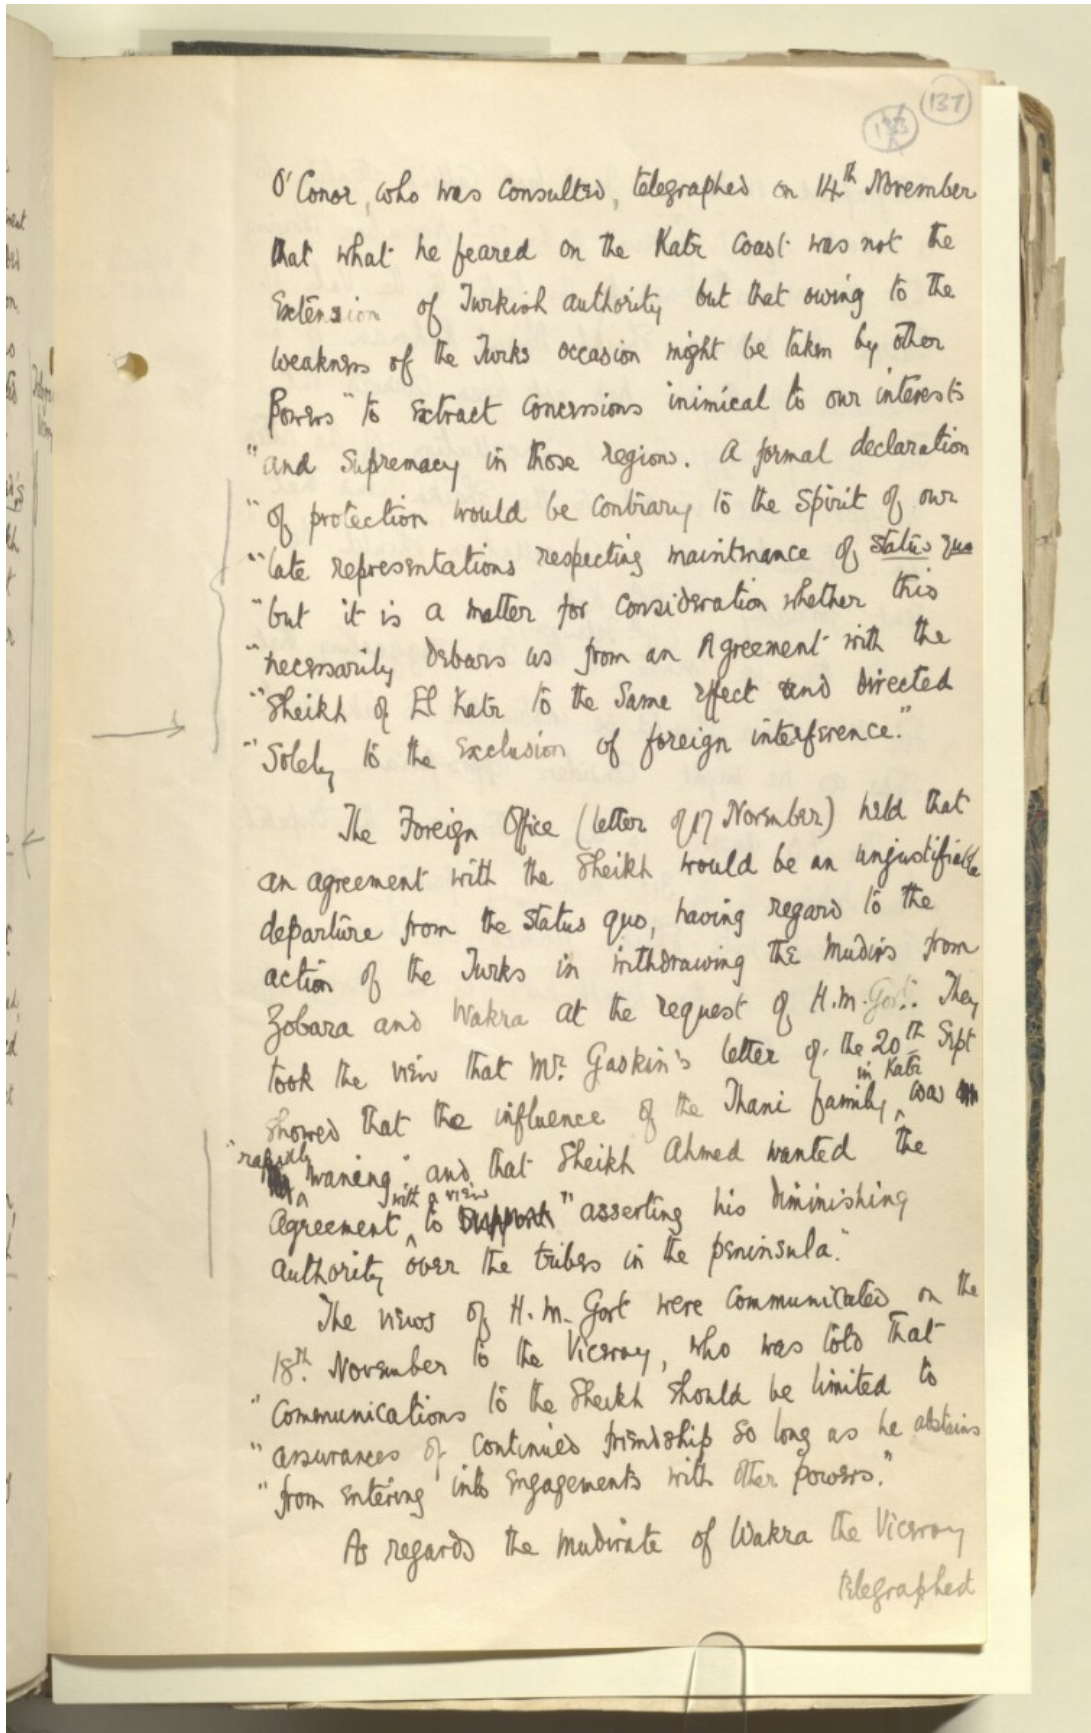 137
O'Conor, who was consulted, telegraphed on 14th November
that what he feared on the Katr Coast was not the
Extension of Turkish authority but that owing to the
weakness of the Turks occasion might be taken by other
Powers "to extract concessions inimical to our interests
"and Supremacy in those regions. A formal declaration
"of protection would be contrary to the Spirit of our
"late representations respecting maintenance of status quo
"but it is a matter for consideration whether this
"necessarily debars us from an Agreement with the
"Sheikh of El Katr to the same effect and directed
"Solely to the Exclusion of foreign interference."
The Foreign Office (letter of 17 November) held that
an agreement with the Sheikh would be an unjustifiable
departure from the status quo, having regard to the
action of the Turks in withdrawing the Mudirs from
Zobara and Wakra at the request of H.M. Govt. They
took the view that Mr. Gaskin's letter of the 20th Sept
showed that the influence of the Thani family in Katr was
"rapidly waning" and that Sheikh Ahmed wanted the
Agreement with a view to "asserting his diminishing
authority over the tribes in the peninsula."
The views of H.M. Govt were communicated on the
18th. November to the Viceroy, who was told that
"Communications to the Sheikh should be limited to
"assurances of continued friendship so long as he abstains
"from entering into engagements with other powers."
As regards the mudirate of Wakra the Viceroy
telegraphed